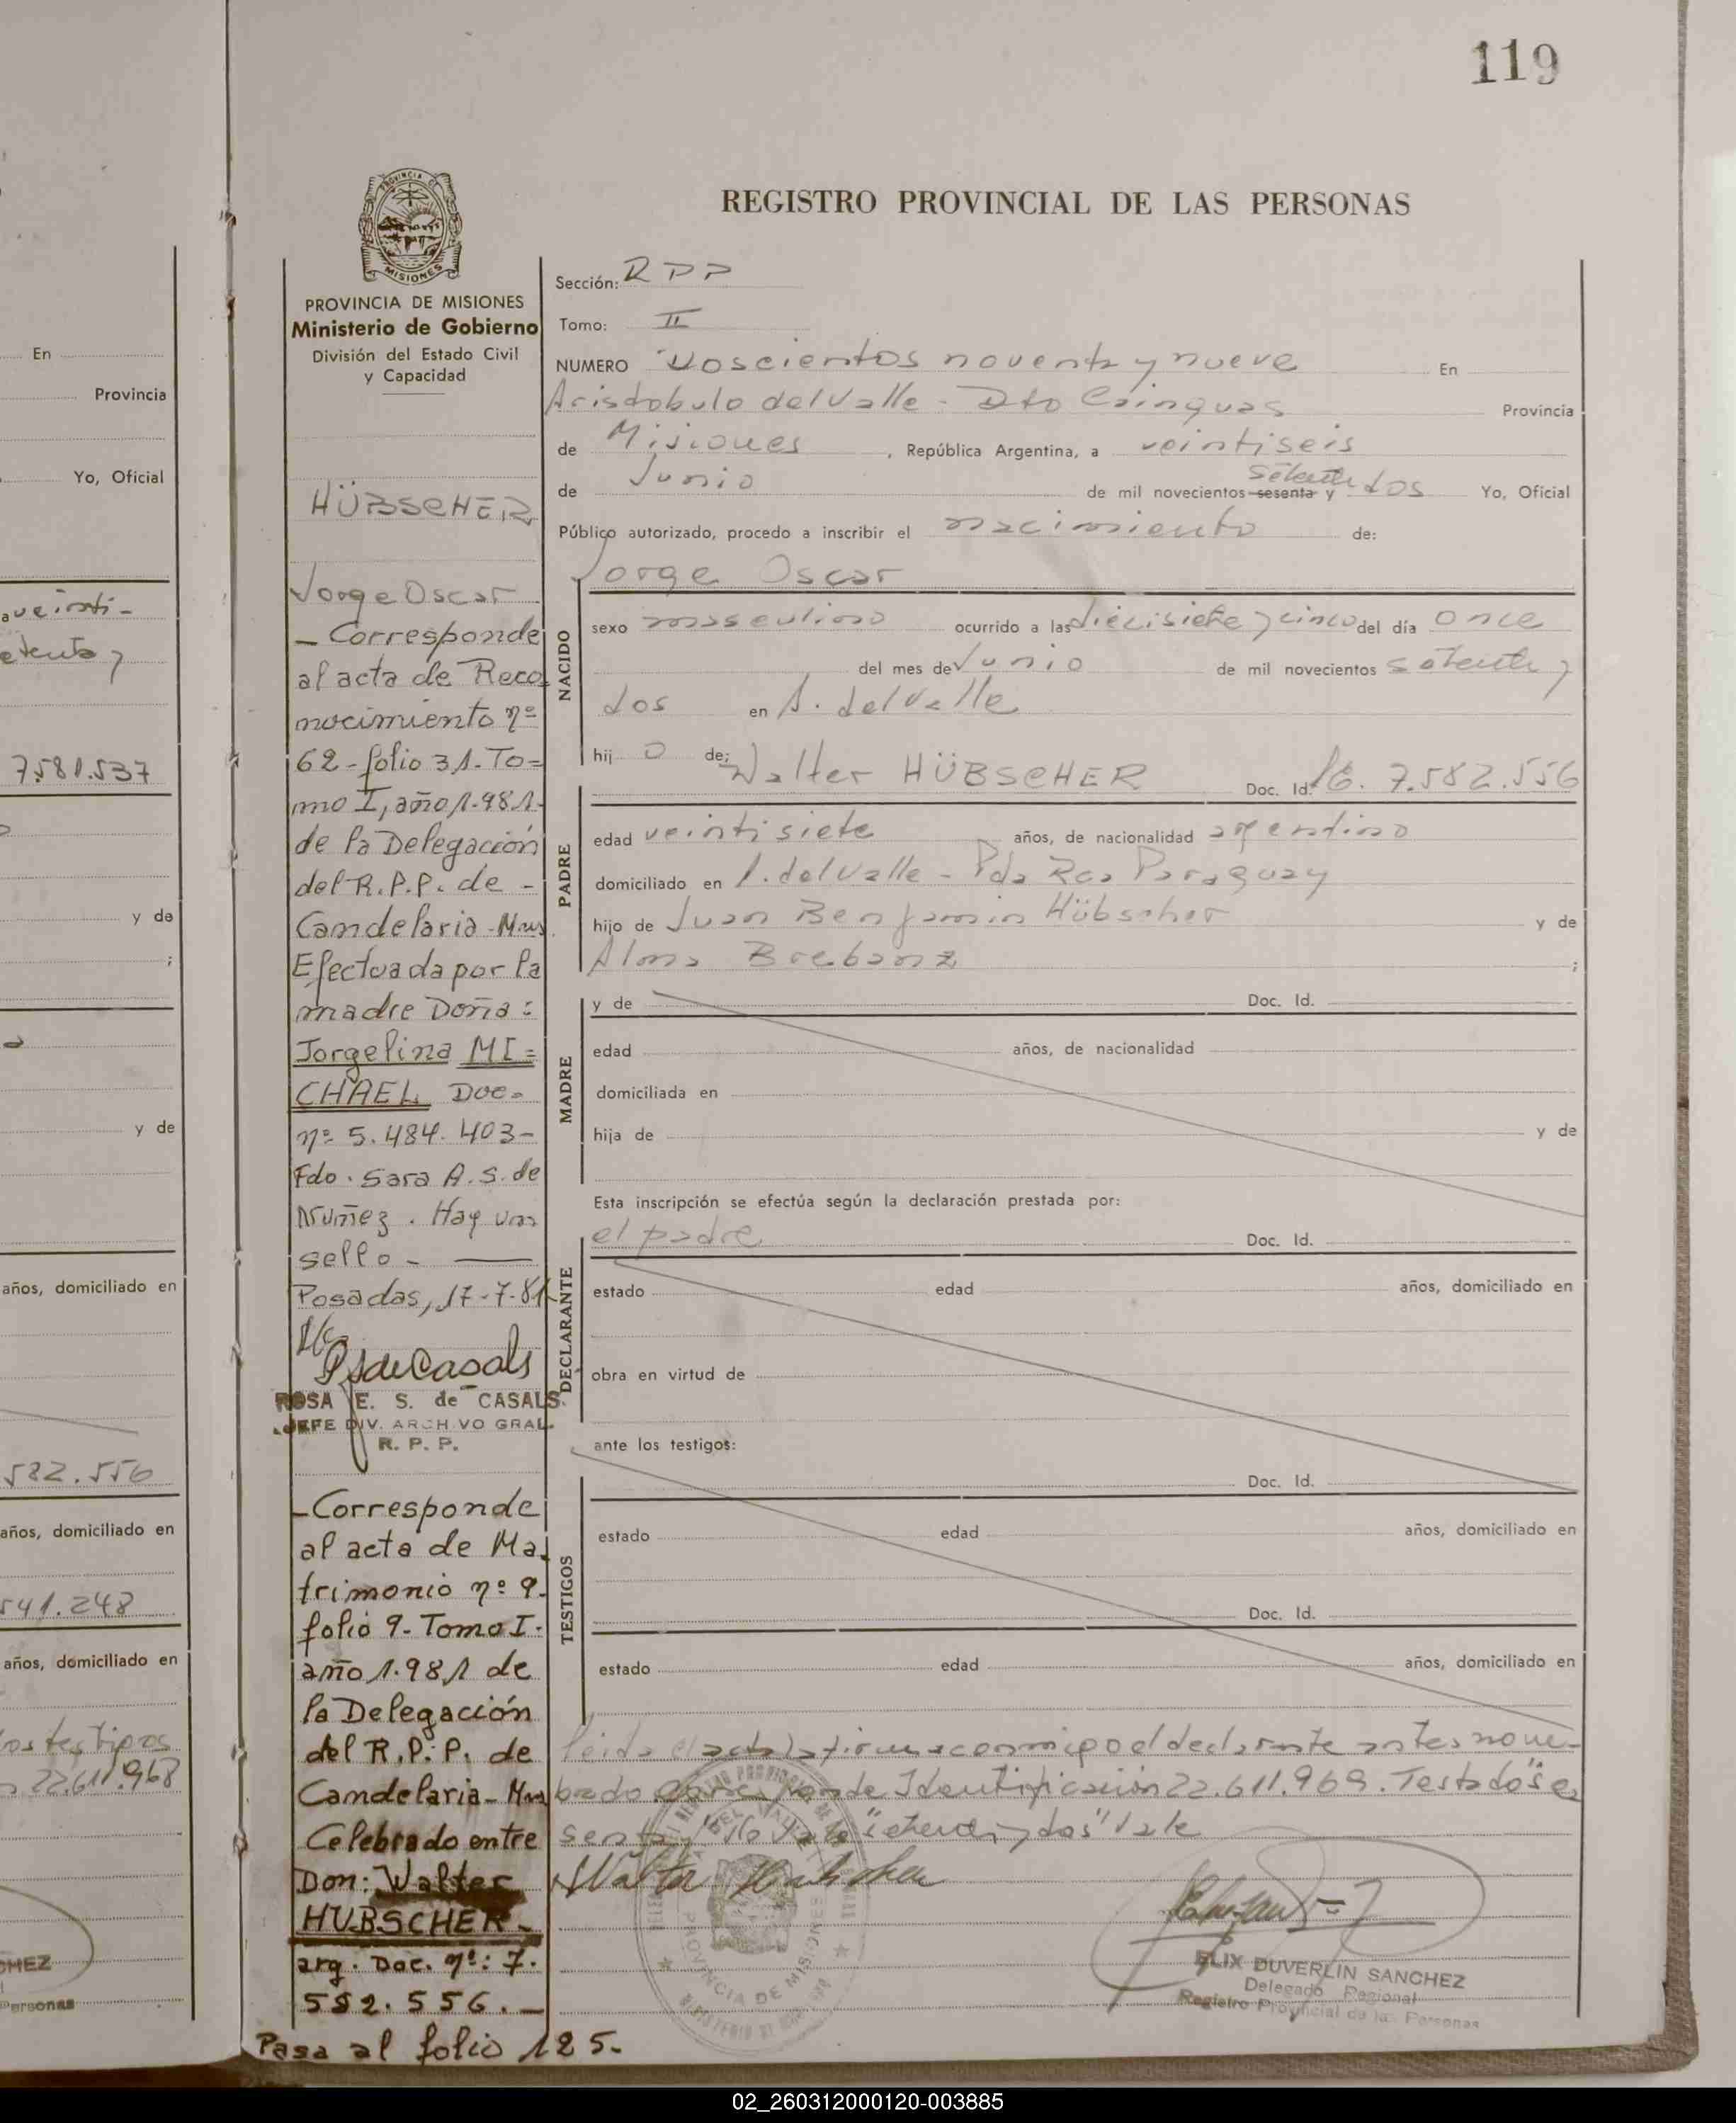 119
En
Provincia
Yo, Oficial
a veinti-
etenta y
7.581.537
y de
;
y de
años, domiciliado en
582.556
años, domiciliado en
541.248
años, domiciliado en
os testigos
22.611.968
CHEZ
Personas
PROVINCIA DE MISIONES
Ministerio de Gobierno
División del Estado Civil
y Capacidad
HÜBSCHER
Jorge Oscar
- Corresponde
al acta de Reco
nocimiento nº
62-folio 31. To=
mo I, año 1.981.
de la Delegación
del R.P.P. de -
Candelaria-Mns.
Efectuada por la
madre Doña:
Jorgelina MI=
CHAEL Doc.
nº 5.484.403-
Fdo. Sara A. S. de
Nuñez. Hay un
sello-
Posadas, 17-7-81
RSdeCasals
ROSA E. S. de CASALS.
JEFE DIV. ARCHIVO GRAL.
R. P. P.
-Corresponde
al acta de Ma-
trimonio nº 9.
folio 9-Tomo I.
año 1.981 de
la Delegación
del R.P.P. de
Candelaria-Mns
Celebrado entre
Don: Walter
HUBSCHER-
arg. Doc. nº: 7.
582.556.-
Pasa al folio 125.
REGISTRO PROVINCIAL DE LAS PERSONAS
Sección: RPP
Tomo: II
NUMERO Doscientos noventa y nueve En
Aristobulo del Valle - Dto Cainguas Provincia
de Misiones, República Argentina, a veintiseis
de Junio de mil novecientos sesenta y setenta dos Yo, Oficial
Público autorizado, procedo a inscribir el nacimiento de:
Jorge Oscar
NACIDO
sexo masculino ocurrido a las diecisiete y cinco del día once
del mes de Junio de mil novecientos setenta y
dos en A. del Valle
hijo de: Walter HÜBSCHER Doc. Id. 7.582.556
PADRE
edad veintisiete años, de nacionalidad argentino
domiciliado en A. del Valle - Pda Rca Paraguay
hijo de Juan Benjamin Hübscher y de
Alma Brebanz ;
MADRE
y de Doc. Id.
edad años, de nacionalidad
domiciliada en
hija de y de
Esta inscripción se efectúa según la declaración prestada por:
el padre Doc. Id.
DECLARANTE
estado edad años, domiciliado en
obra en virtud de
ante los testigos:
Doc. Id.
TESTIGOS
estado edad años, domiciliado en
Doc. Id.
estado edad años, domiciliado en
leida el acta la firma conmigo el declarante antes nom-
brado. Identificación 22.611.969. Testado "se
senta" "setenta y dos" Vale
Walter Hubscher
ELIX DUVERLIN SANCHEZ
Delegado Regional
Registro Provincial de las Personas
PROVINCIA DE MISIONES
02_260312000120-003885